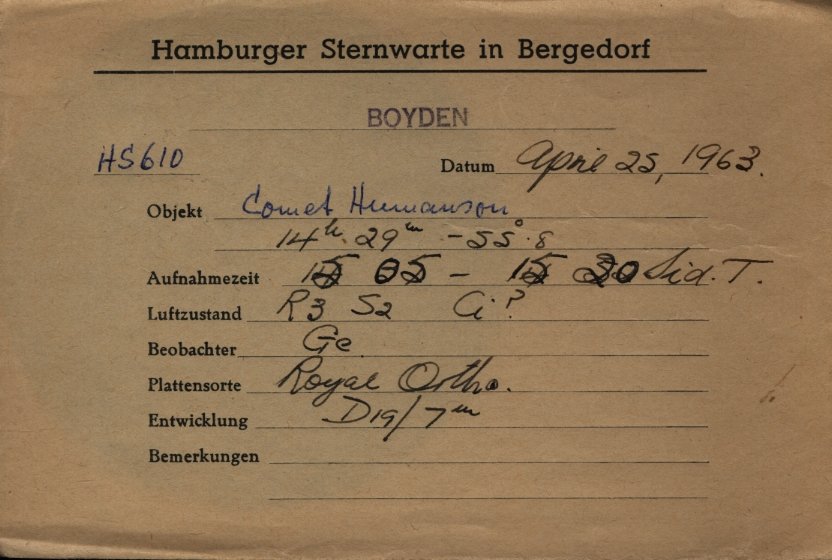 Hamburger Sternwarte in Bergedorf
BOYDEN
HS610
Datum April 25, 1963.
Objekt Comet Humanson
14h 29m -55°.8
Aufnahmezeit 15 05 - 15 30 Sid. T.
Luftzustand R3 S2 Ci?
Beobachter Ge
Plattensorte Royal Ortho.
Entwicklung D19/7m
Bemerkungen